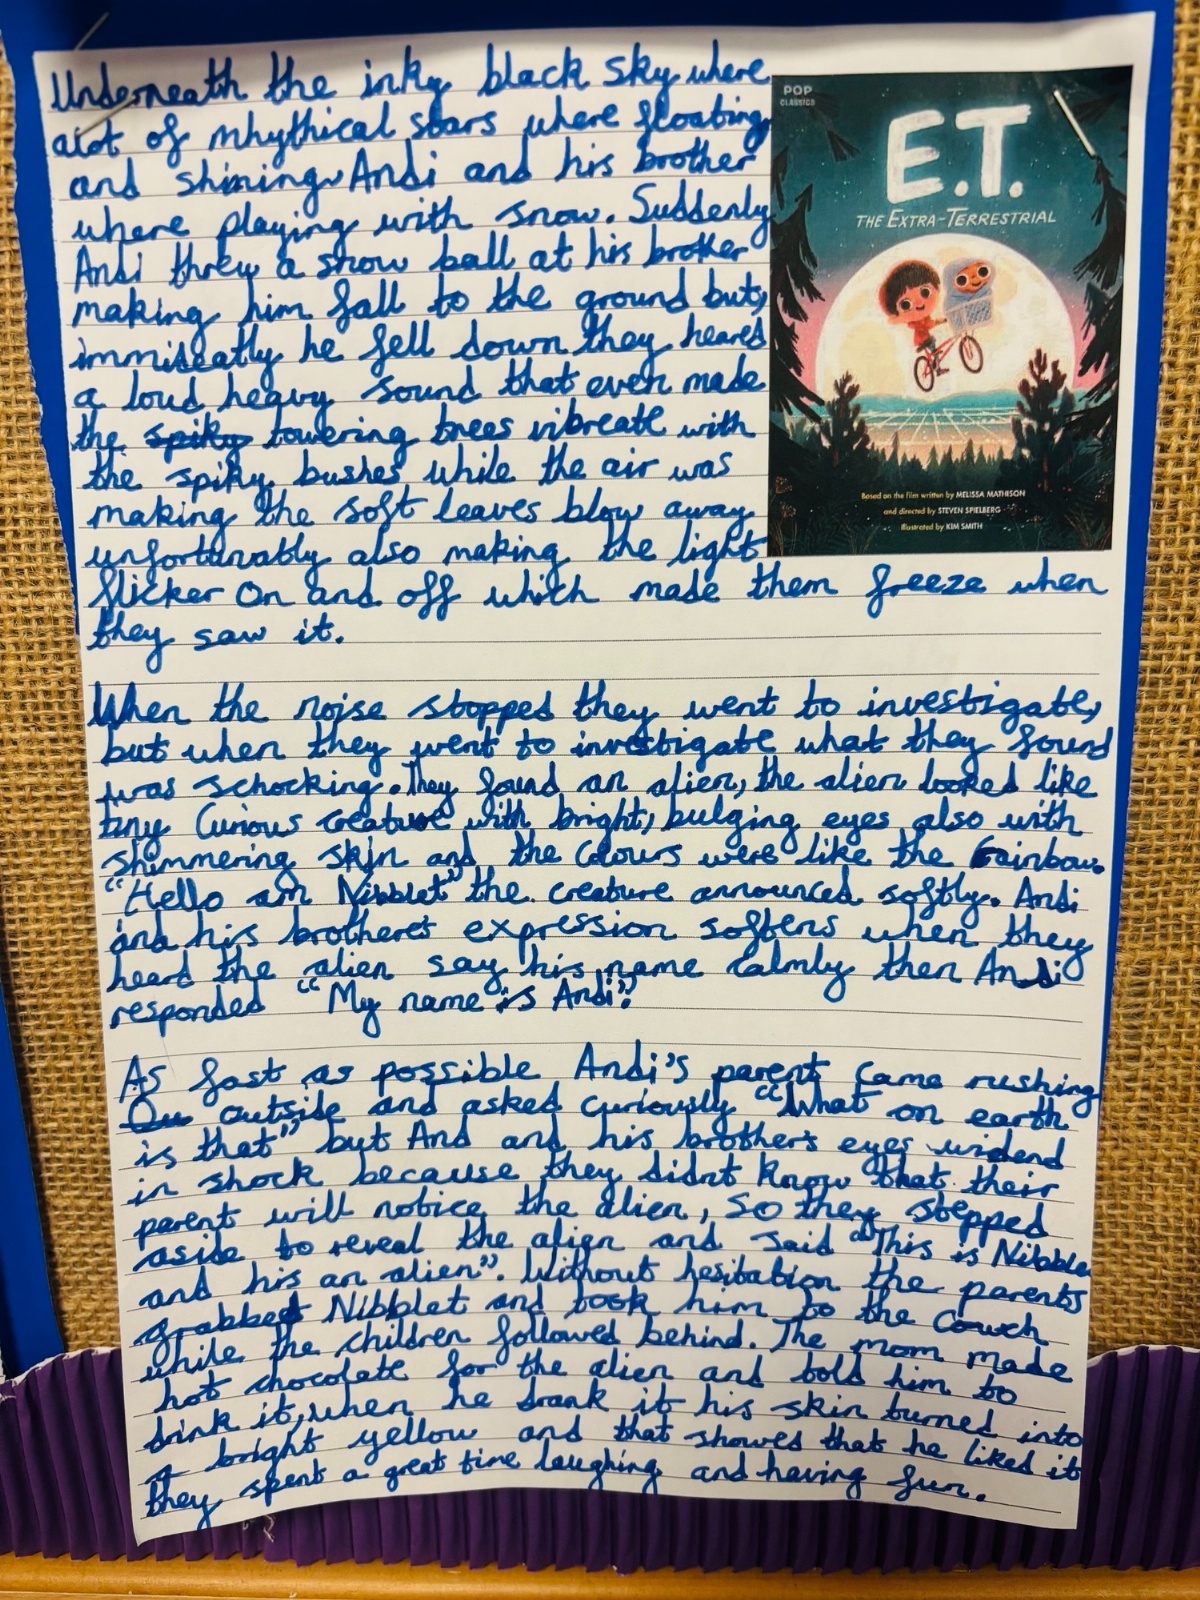 Underneath the inky black sky where
alot of mhythical stars where floating
and shining. Andi and his brother
where playing with snow. Suddenly
Andi threw a snow ball at his brother
making him fall to the ground but,
immideatly he fell down they heared
a loud heavy sound that even made
the spiky towering trees vibreate with
the spiky bushes while the air was
making the soft leaves blow away
unfortunatly also making the light
flicker on and off which made them freeze when
they saw it.
When the noise stopped they went to investigate,
but when they went to investigate what they found
was schocking. They found an alien, the alien looked like
tiny curious creature with bright, bulging eyes also with
shimmering skin and the colours were like the rainbow.
"Hello am Nibblet" the creature announced softly. Andi
and his brothers expression softens when they
heard the alien say his name calmly then Andi
responded "My name is Andi".
As fast as possible Andi's parent came rushing
Ou outside and asked curiously "What on earth
is that" but Andi and his brother's eyes widend
in shock because they didnt know that their
parent will notice the alien, so they stepped
aside to reveal the alien and said "This is Nibble
and his an alien". Without hesitation the parents
grabbed Nibblet and took him to the couch
while the children followed behind. The mom made
hot chocolate for the alien and told him to
drink it, when he drank it his skin turned into
a bright yellow and that showed that he liked it
they spent a great time laughing and having fun.
POP
CLASSICS
E.T.
THE EXTRA-TERRESTRIAL
Based on the film written by MELISSA MATHISON
and directed by STEVEN SPIELBERG
Illustrated by KIM SMITH